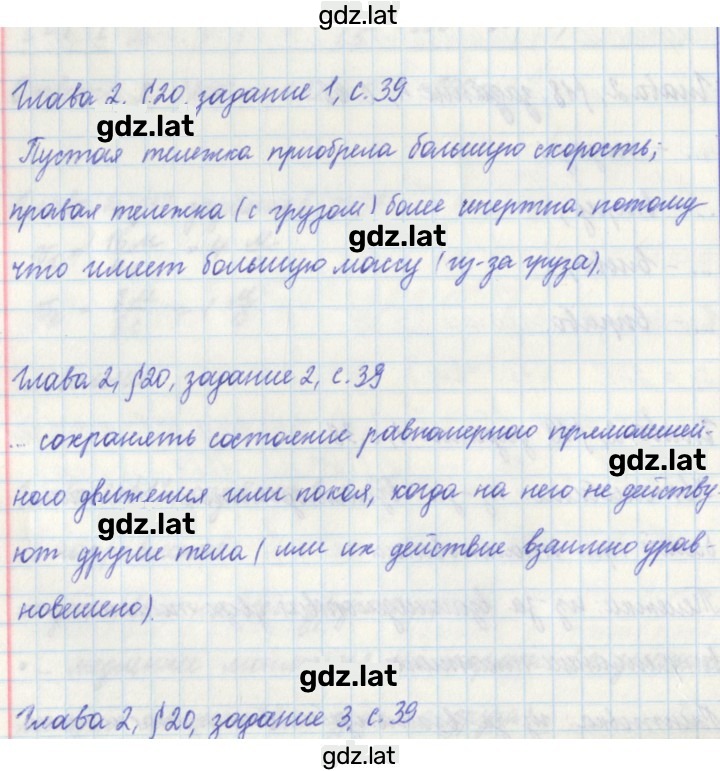 gdz.lat
Глава 2. §20. задание 1, с. 39
gdz.lat
Пустая тележка приобрела большую скорость;
правая тележка (с грузом) более инертна, потому
gdz.lat
что имеет большую массу (из-за груза).
Глава 2, §20, задание 2, с. 39
... сохранять состояние равномерного прямолиней-
gdz.lat
ного движения или покоя, когда на него не действу
gdz.lat
ют другие тела (или их действие взаимно урав
новешено).
gdz.lat
Глава 2, §20, задание 3, с. 39
gdz.lat